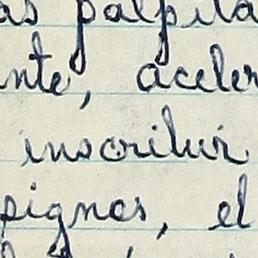 as palpita
nte, aceler
inscribir
pignos, el